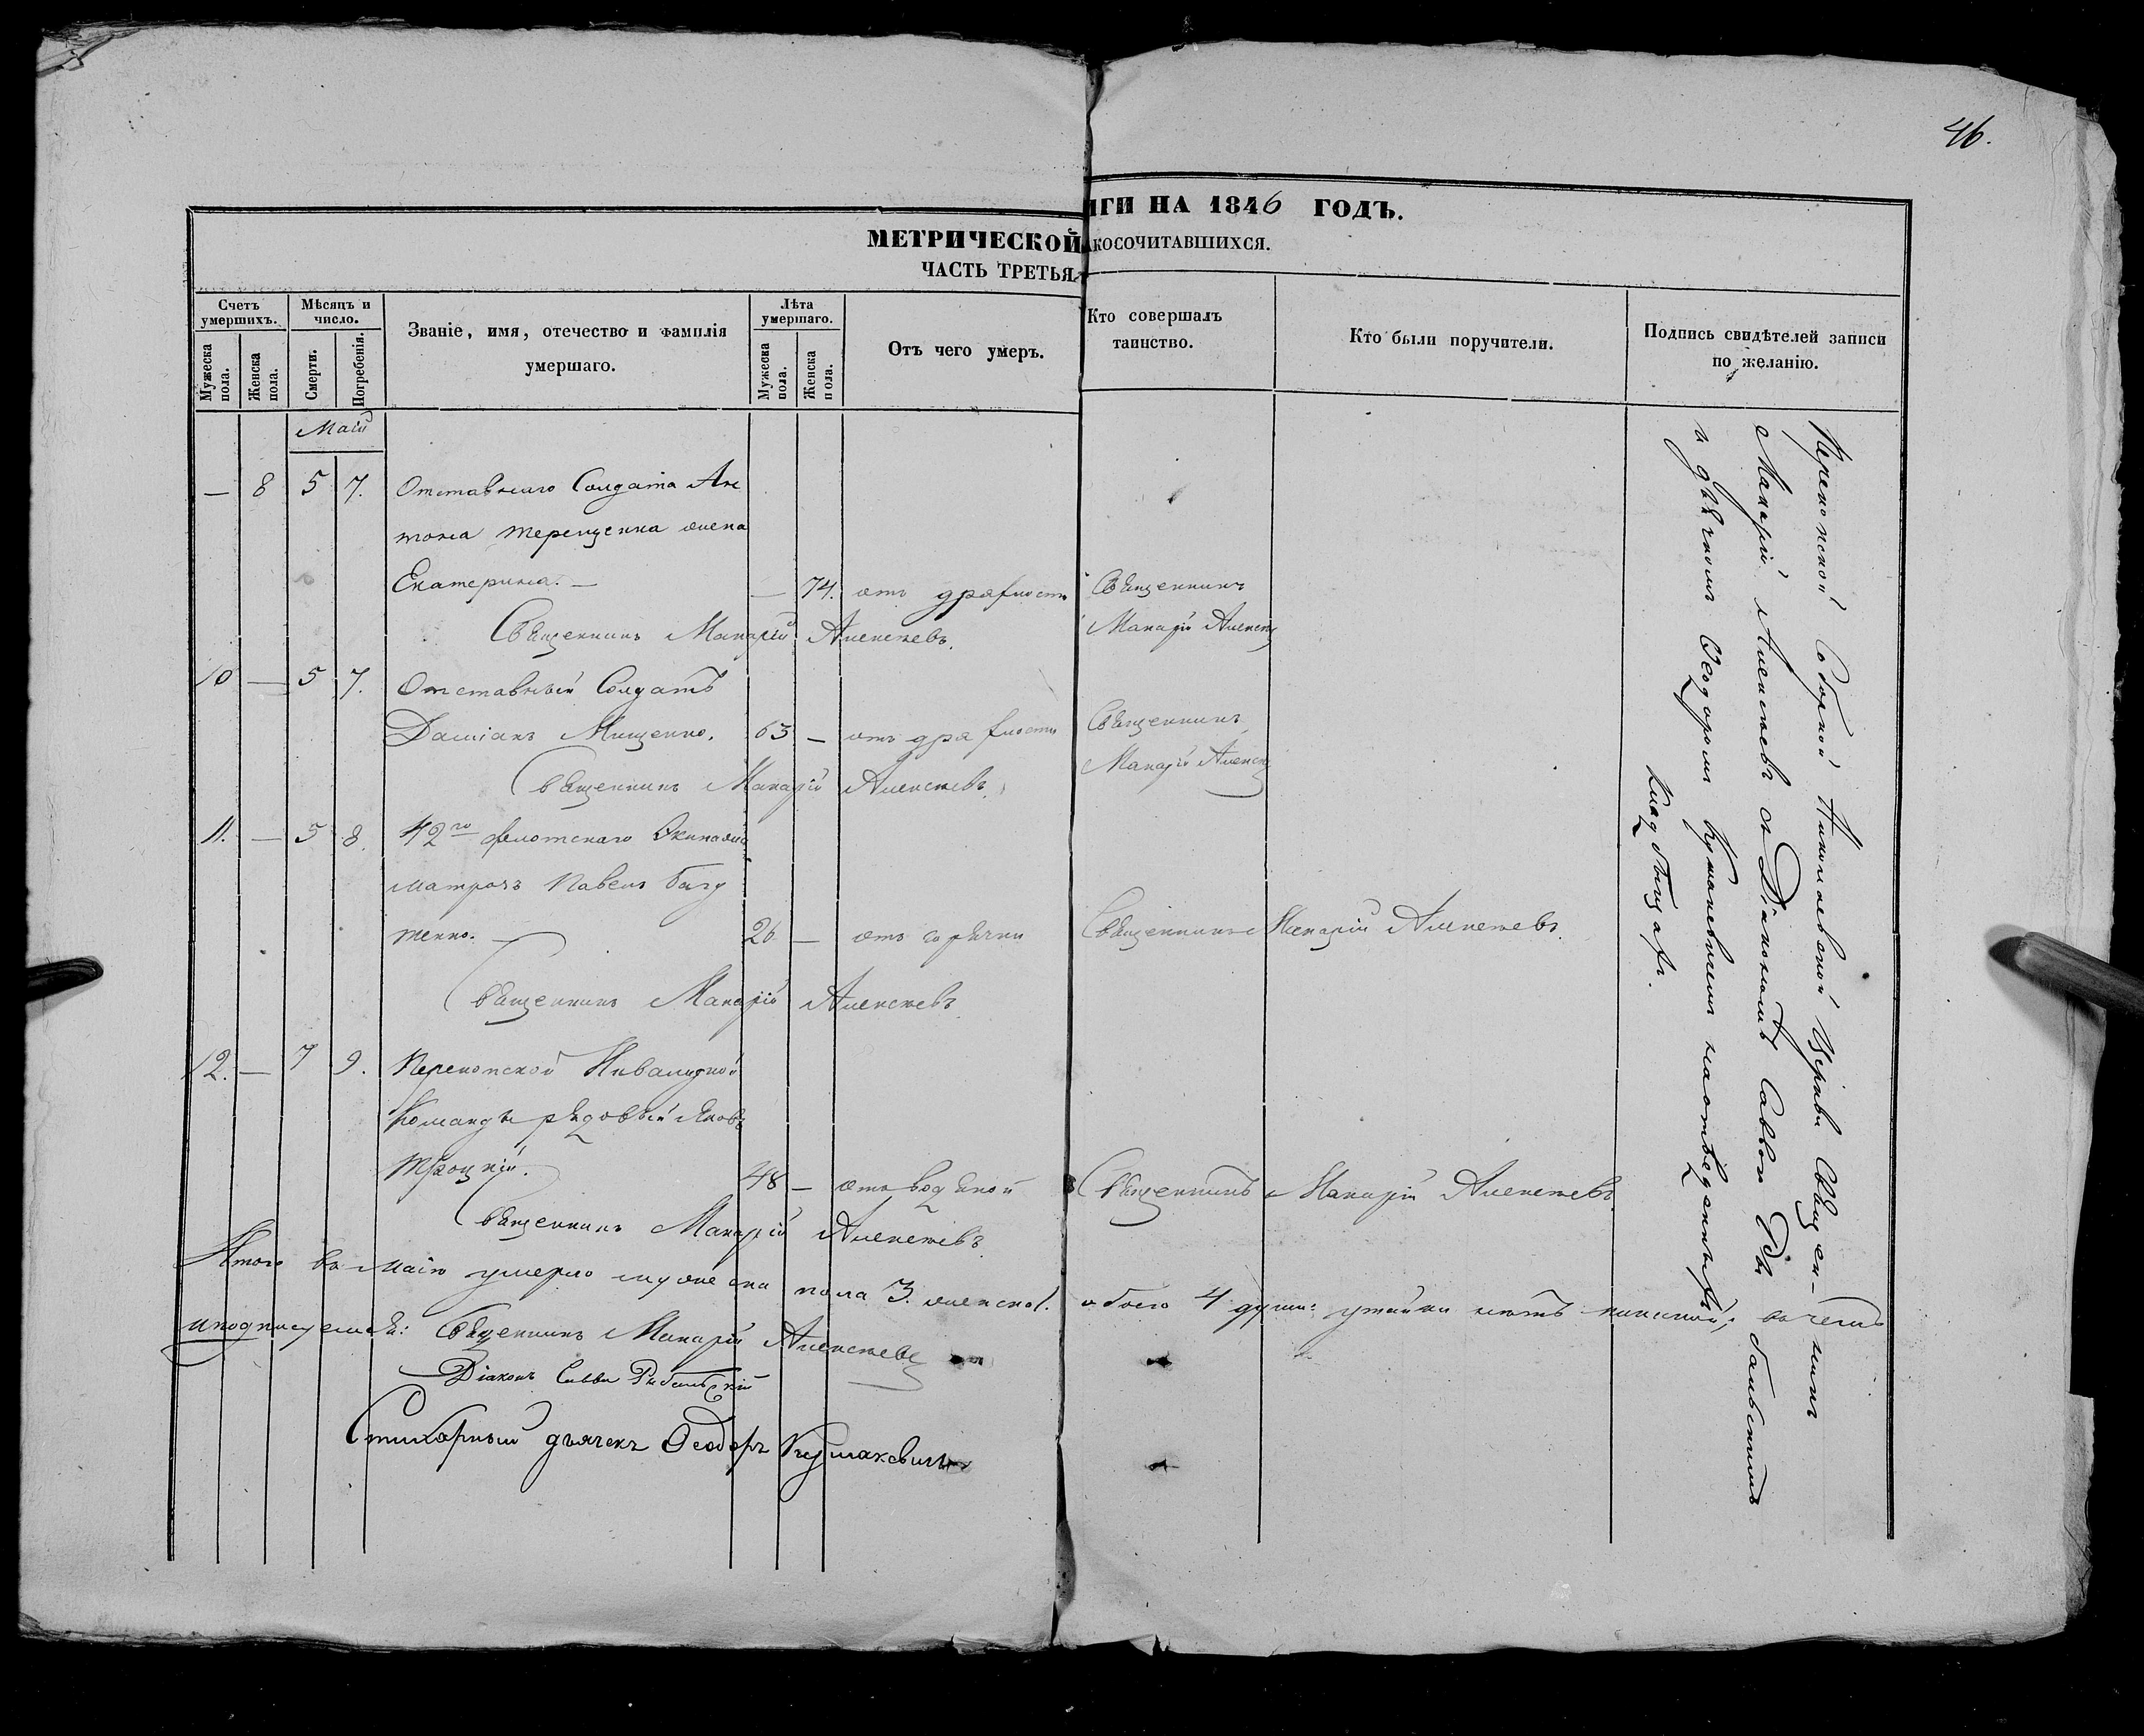 46.
МЕТРИЧЕСКОЙ
ИГИ НА 1846 ГОДЪ.
ЧАСТЬ ТРЕТЬЯ
КОСОЧИТАВШИХСЯ.
Счетъ умершихъ.
Мужеска пола.
Женска пола.
Мѣсяцъ и число.
Смерти.
Погребенія.
Званіе, имя, отечество и фамилія
умершаго.
Лѣта умершаго.
Мужеска пола.
Женска пола.
Отъ чего умеръ.
Кто совершалъ
таинство.
Кто были поручители.
Подпись свидѣтелей записи
по желанію.
Маій
— 8 5 7. Отставнаго Солдата Ан
тона Терещенка жена
Екатерина. — — 74. отъ дряхлости Священникъ
Священникъ Макарій Алексѣевъ. Макарій Алексѣ
10 — 5 7. Отставный Солдатъ
Даміанъ Мищенко. 63 — отъ дряхлости Священникъ
Священникъ Макарій Алексѣевъ. Макарій Алексѣ
11. — 5 8. 42го флотскаго Экипажа
матрозъ Павелъ
тенко. — 26 — отъ горячки Священникъ Макарій Алексѣевъ.
Священникъ Макарій Алексѣевъ.
12. — 7 9. Перекопской Инвалидной
Команды рядовый Яковъ
Троцкій. 48 — отъ водяной Священникъ Макарій Алексѣевъ.
Священникъ Макарій Алексѣевъ.
Итого въ Маію умерло мужеска пола 3. женска 1. обоего 4 души: утайки нѣтъ никакой; въ чемъ
и подписуемся: Священникъ Макарій Алексѣевъ
Діаконъ Савва Рыбальскій
Стихарный дьячекъ Ѳеодоръ Кушакевичъ
Перекопской Соборной Николаевской Церкви Священникъ
Макарій Алексѣевъ съ Діакономъ Саввою Рыбальскимъ
и дьячкомъ Ѳеодоромъ Кушакевичемъ на отведенныхъ
кладбищахъ.